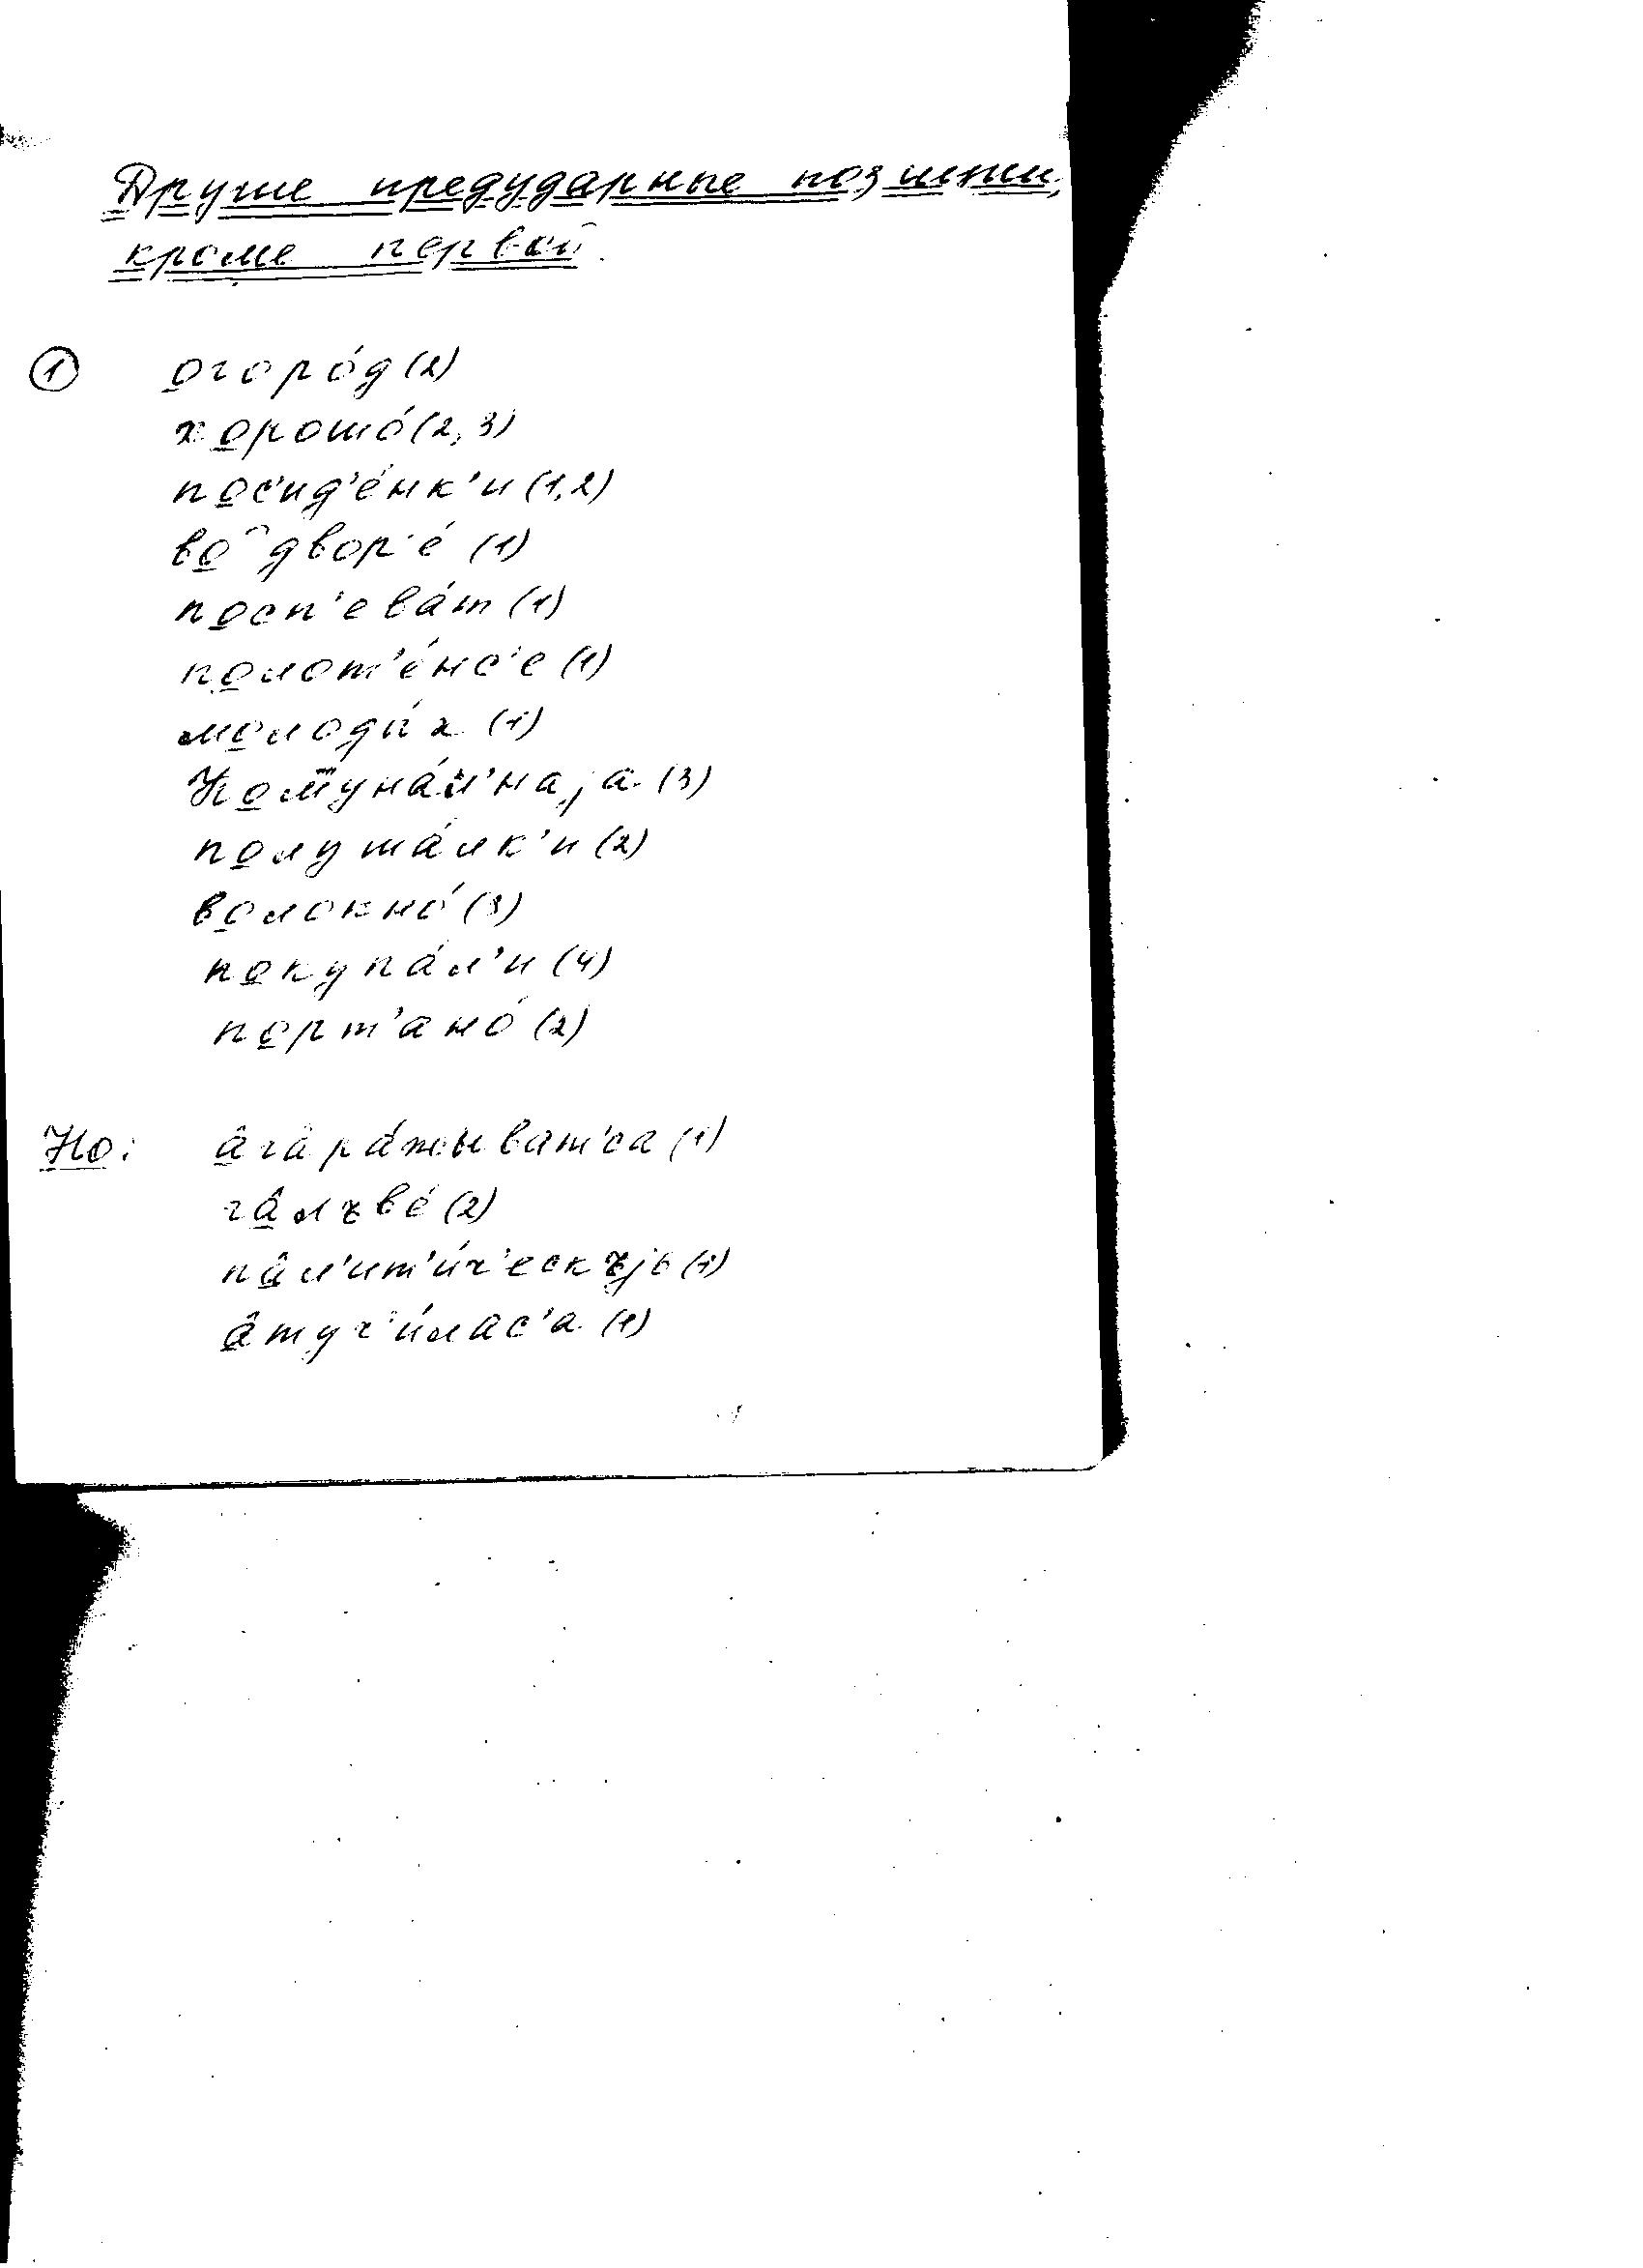 Другие предударные позиции,
кроме первой.
① огоро́д (2)
хорошо́ (2, 3)
пос'ид'е́нк'и (1, 2)
во⁀двор'е́ (1)
посп'ева́т (1)
полот'е́нс'е (1)
молоды́х (1)
Кому̅на́л'наjа (3)
полуша́лк'и (2)
волокно́ (3)
покупа́л'и (4)
порт'ано́ (2)
Но: а̂га̂ра́жыват'са (1)
га̂лъве́ (2)
па̂л'ит'и́ч'ескъjь (1)
а̂туч'и́лас'а (1)